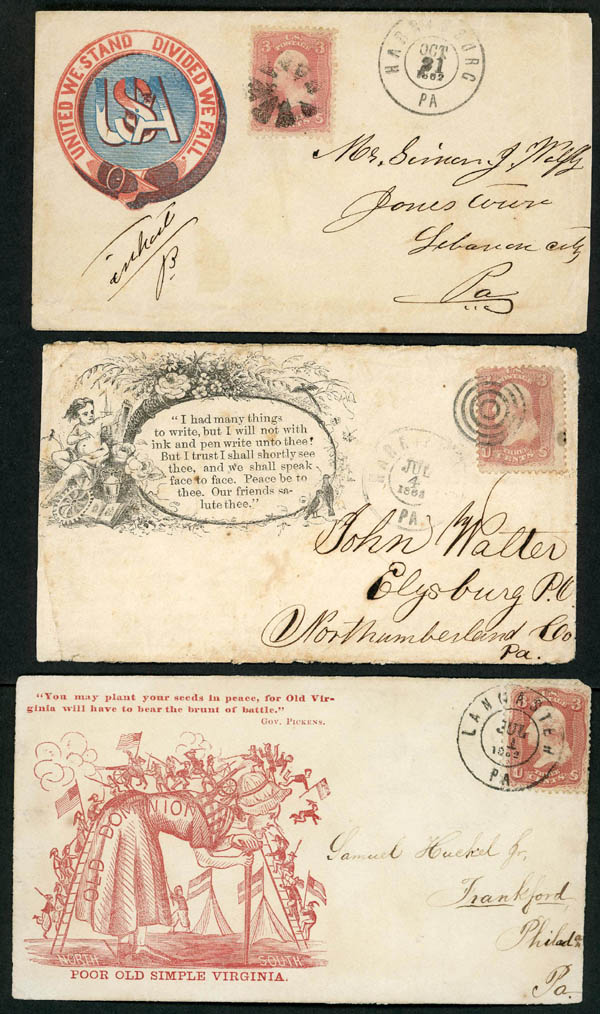 UNITED WE STAND DIVIDED WE FALL.
USA
3 3
U.S. POSTAGE
HARRISBURG
OCT
21
1862
PA
Mr. Simon J.
Jonestown
Lebanon city
Pa
"I had many things
to write, but I will not with
ink and pen write unto thee!
But I trust I shall shortly see
thee, and we shall speak
face to face. Peace be to
thee. Our friends sa-
lute thee."
JUL
4
PA.
3
U THREE CENTS S
John Walter
Elysburg P.O.
Northumberland Co
Pa.
"You may plant your seeds in peace, for Old Vir-
ginia will have to bear the brunt of battle."
GOV. PICKENS.
OLD DOMINION
NORTH SOUTH
POOR OLD SIMPLE VIRGINIA.
LANCASTER
JUL
PA
3
U THREE CENTS S
Samuel Huckel Jr.
Frankford
Philada
Pa.